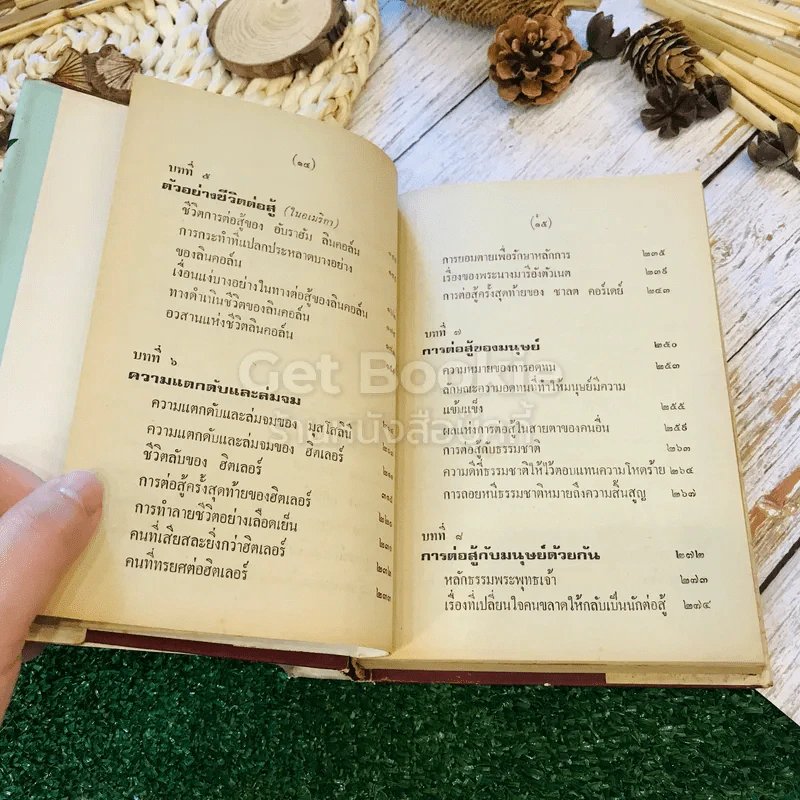 (๑๔)
บทที่ ๕
ตัวอย่างชีวิตต่อสู้ (ในอเมริกา)
ชีวิตการต่อสู้ของ อับราฮัม ลินคอล์น
การกระทำที่แปลกประหลาดบางอย่าง
ของลินคอล์น
เงื่อนแง่บางอย่างในทางต่อสู้ของลินคอล์น
ทางดำเนินชีวิตของลินคอล์น
อวสานแห่งชีวิตลินคอล์น
บทที่ ๖
ความแตกดับและล่มจม
ความแตกดับและล่มจมของ มุสโสลินี
ความแตกดับและล่มจมของ ฮิตเลอร์
ชีวิตลับของ ฮิตเลอร์
การต่อสู้ครั้งสุดท้ายของฮิตเลอร์
การทำลายชีวิตอย่างเลือดเย็น
คนที่เสียสละยิ่งกว่าฮิตเลอร์
คนที่ทรยศต่อฮิตเลอร์
(๑๕)
การยอมตายเพื่อรักษาหลักการ ๒๓๕
เรื่องของพระนางมารีอังตัวเนต ๒๓๙
การต่อสู้ครั้งสุดท้ายของ ชาลต คอร์เดย์ ๒๔๓
บทที่ ๗
การต่อสู้ของมนุษย์ ๒๕๑
ความหมายของการอดทน ๒๕๓
ลักษณะความอดทนที่ทำให้มนุษย์มีความ
แข้มแข็ง ๒๕๕
ผลแห่งการต่อสู้ในสายตาของคนอื่น ๒๕๙
การต่อสู้กับธรรมชาติ ๒๖๓
ความดีที่ธรรมชาติให้ไว้ตอบแทนความโหดร้าย ๒๖๔
การถอยหนีธรรมชาติหมายถึงความสิ้นสูญ ๒๖๗
บทที่ ๘
การต่อสู้กับมนุษย์ด้วยกัน ๒๗๒
หลักธรรมพระพุทธเจ้า ๒๗๓
เรื่องที่เปลี่ยนใจคนขลาดให้กลับเป็นนักต่อสู้ ๒๗๔